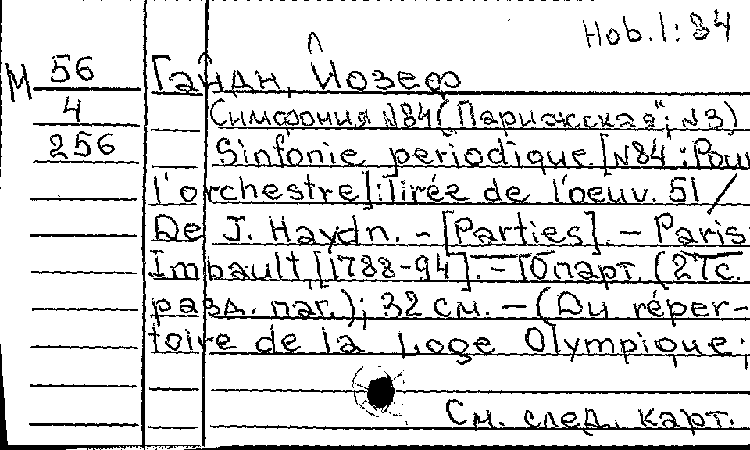 Hob.I:84
М 56
4
256
Гайдн, Йозеф
Симфония №84("Парижская"; №3)
Sinfonie periodique.[№84 :Pour
l'orchestre]:Tirée de l'oeuv. 51 /
De J. Haydn. - [Parties]. - Paris:
Imbault, [1788-94]. - 10 парт. (27с.
разд. паг.); 32 см. - (Du réper-
toire de la Loge Olympique;
См. след. карт.